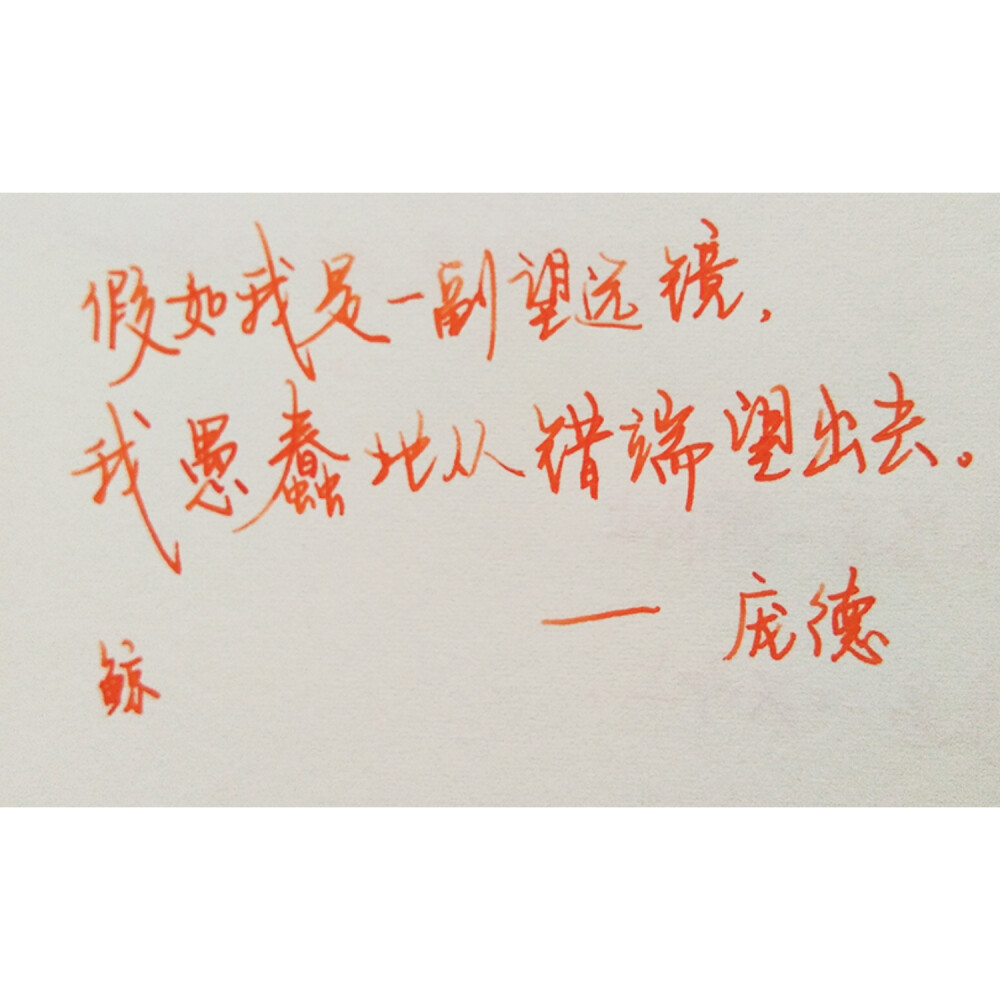 假如我是一副望远镜，
我愚蠢地从错端望出去。
—— 庞德
鲸